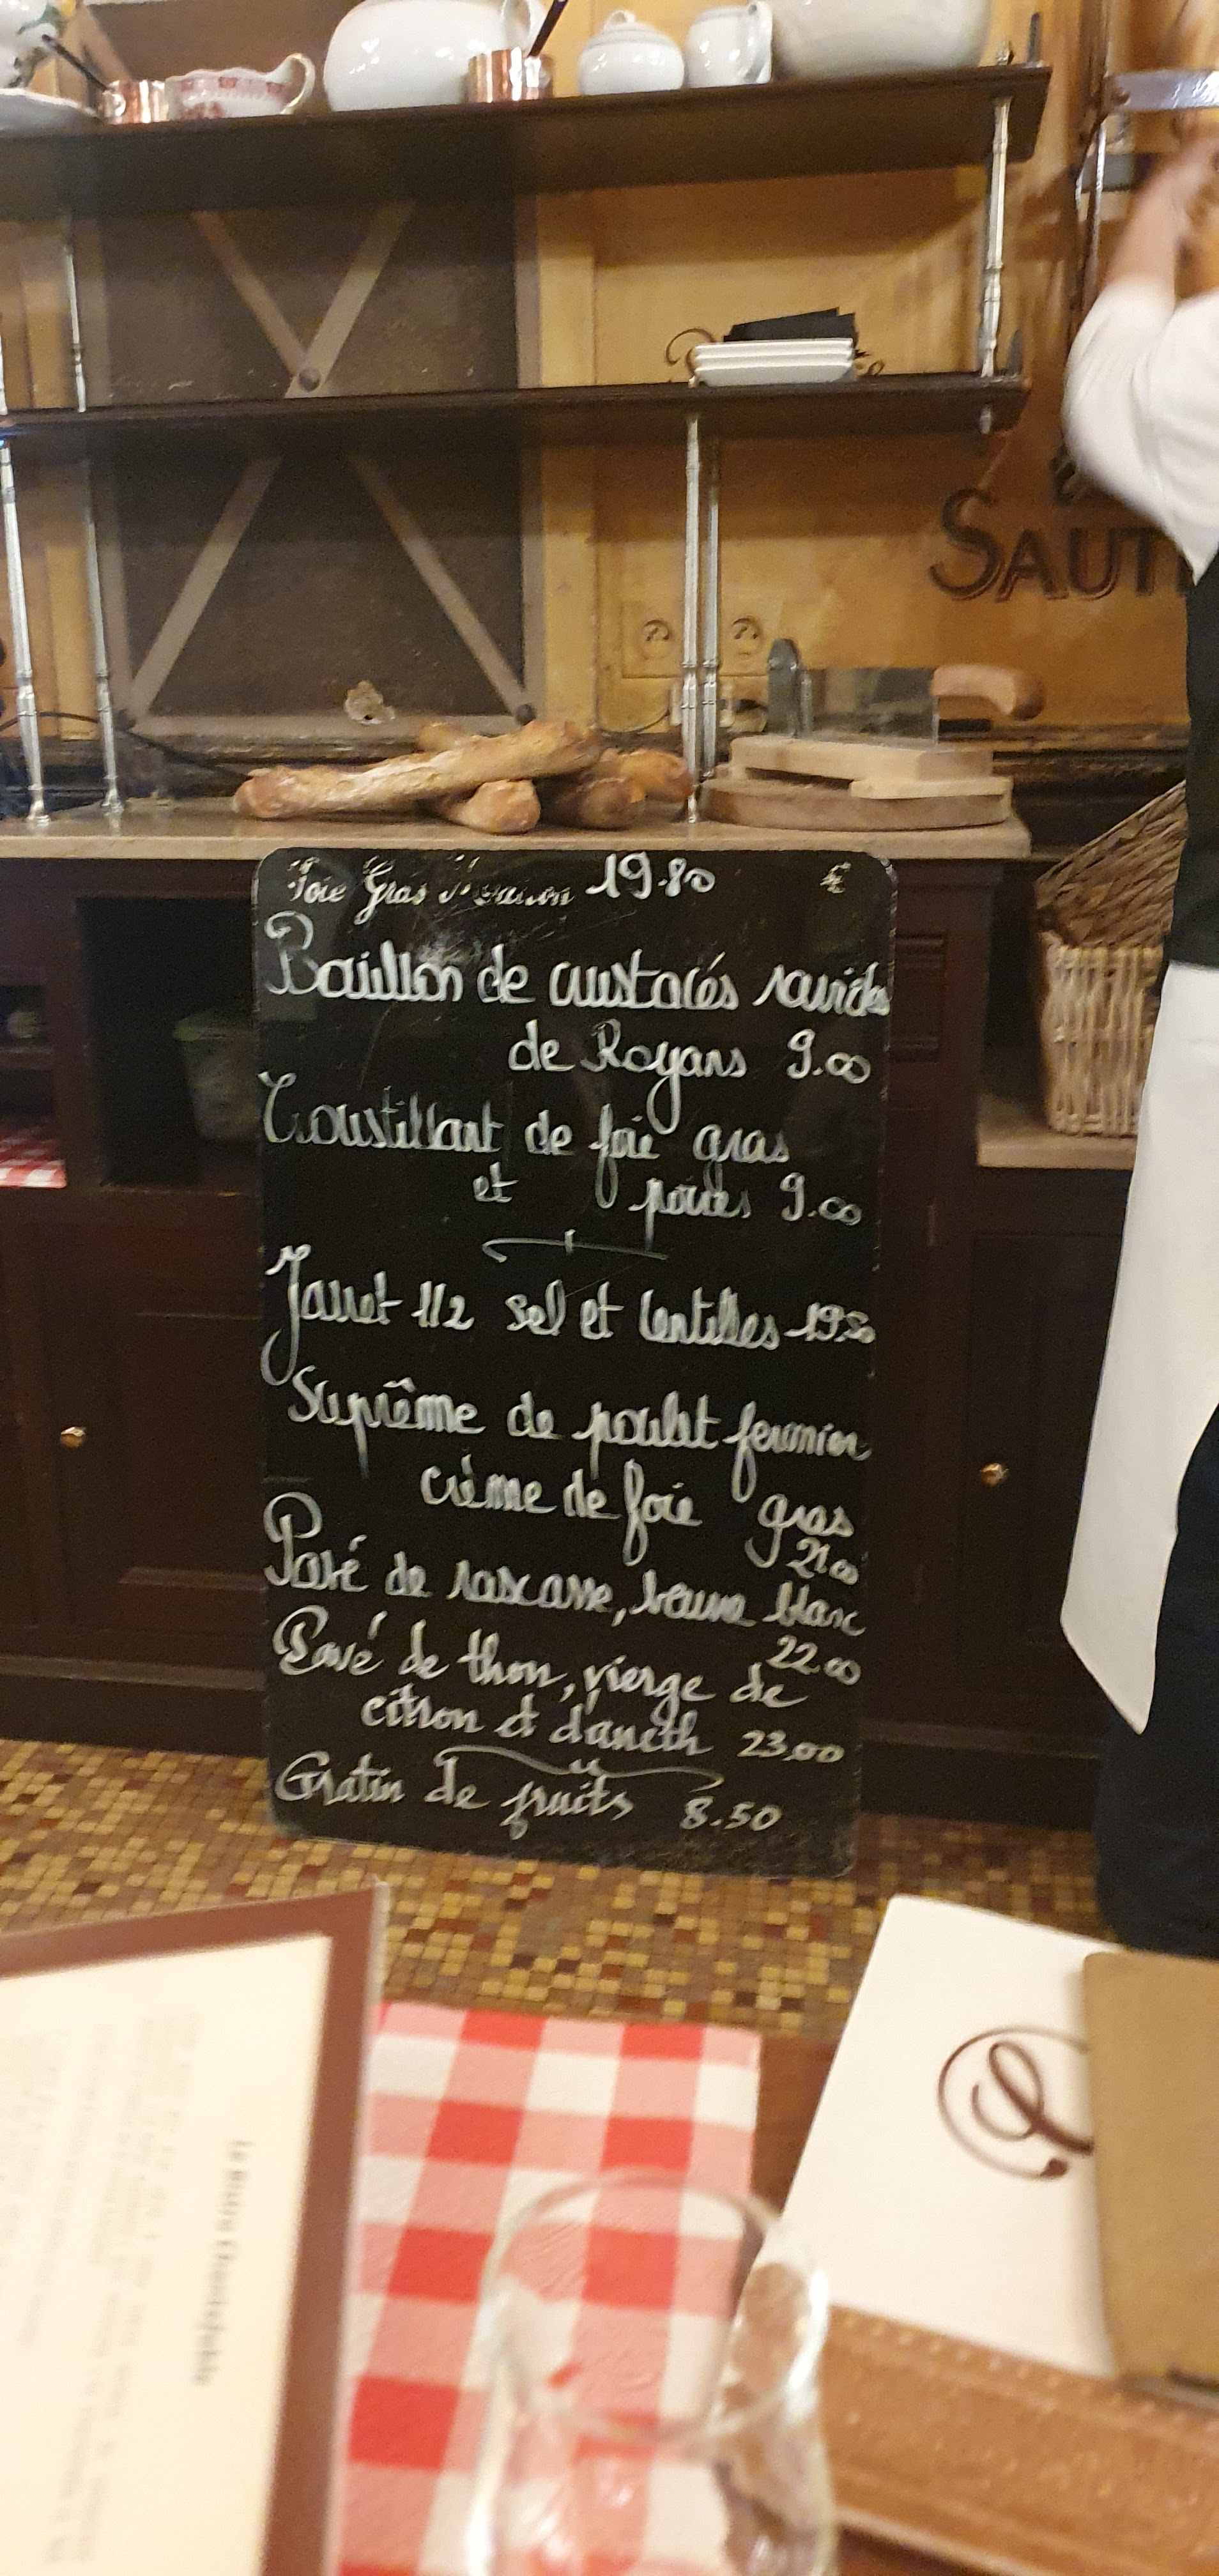 SAUT
Foie Gras Maison 19.80 €
Bouillon de crustacés ravioles
de Royans 9.00
Croustillant de foie gras
et poires 9.00
Jarret 1/2 sel et lentilles 19.50
Suprême de poulet fermier
crème de foie gras
21.00
Pavé de rascasse, beurre blanc
22.00
Pavé de thon, vierge de
citron et d'aneth 23.00
Gratin de fruits 8.50
Le Bistro